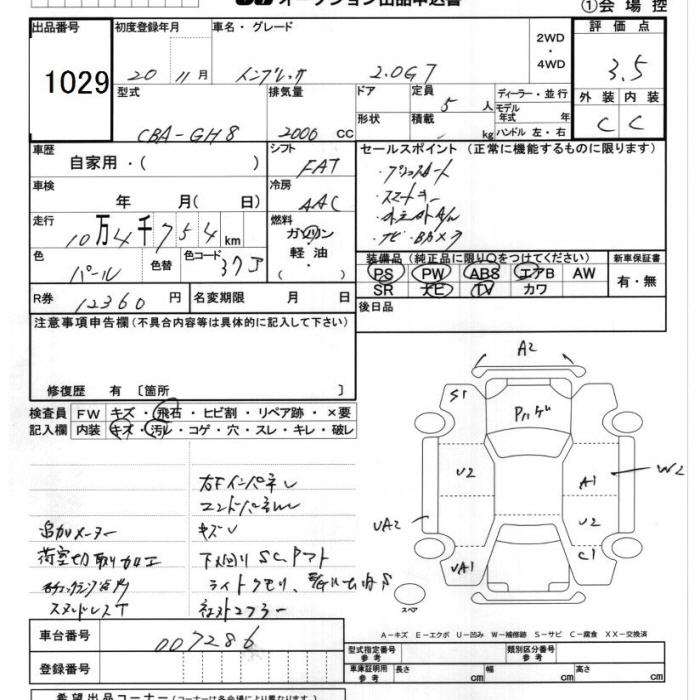 オークション出品申込書
①会場控
出品番号
1029
初度登録年月
20 11月
車名・グレード
インプレッサ 2.0GT
2WD
・
4WD
評価点
3.5
型式
CBA-GH8
排気量
2000 cc
ドア
形状
定員
5 人
積載
kg
ディーラー・並行
モデル年式 年
ハンドル 左・右
外装 内装
C C
車歴
自家用・( )
シフト
FAT
セールスポイント (正常に機能するものに限ります)
・プッシュスタート
・スマートキー
・ナビ・Bカメラ
車検
年 月( 日)
冷房
AAC
走行
10万4千754km
燃料
ガソリン
軽油
・
色
パール
色替
色コード
37J
装備品 (純正品に限り○をつけてください)
PS PW ABS エアB AW
SR ナビ TV カワ
新車保証書
有・無
R券
12360円
名変期限 月 日
後日品
注意事項申告欄 (不具合内容等は具体的に記入して下さい)
修復歴 有 〔箇所 〕
検査員
記入欄
FW キズ・飛石・ヒビ割・リペア跡・×要
内装 キズ・汚レ・コゲ・穴・スレ・キレ・破レ
右Fインパネレ
エンドパネル
キズレ
追加メーター
荷室切取り加工
スタッドレスT
下廻り SC,アト
ライトクモリ
社外マフラー
A2
S1
Pハゲ
U2
A1
W2
U2
UA2
UA1
C1
スペア
A-キズ E-エクボ U-凹み W-補修跡 S-サビ C-腐食 XX-交換済
車台番号
007286
登録番号
型式指定番号
参考
類別区分番号
参考
車庫証明用
参考
長さ cm
幅 cm
高さ cm
希望出品コーナー (コーナーは各会場により異なります)